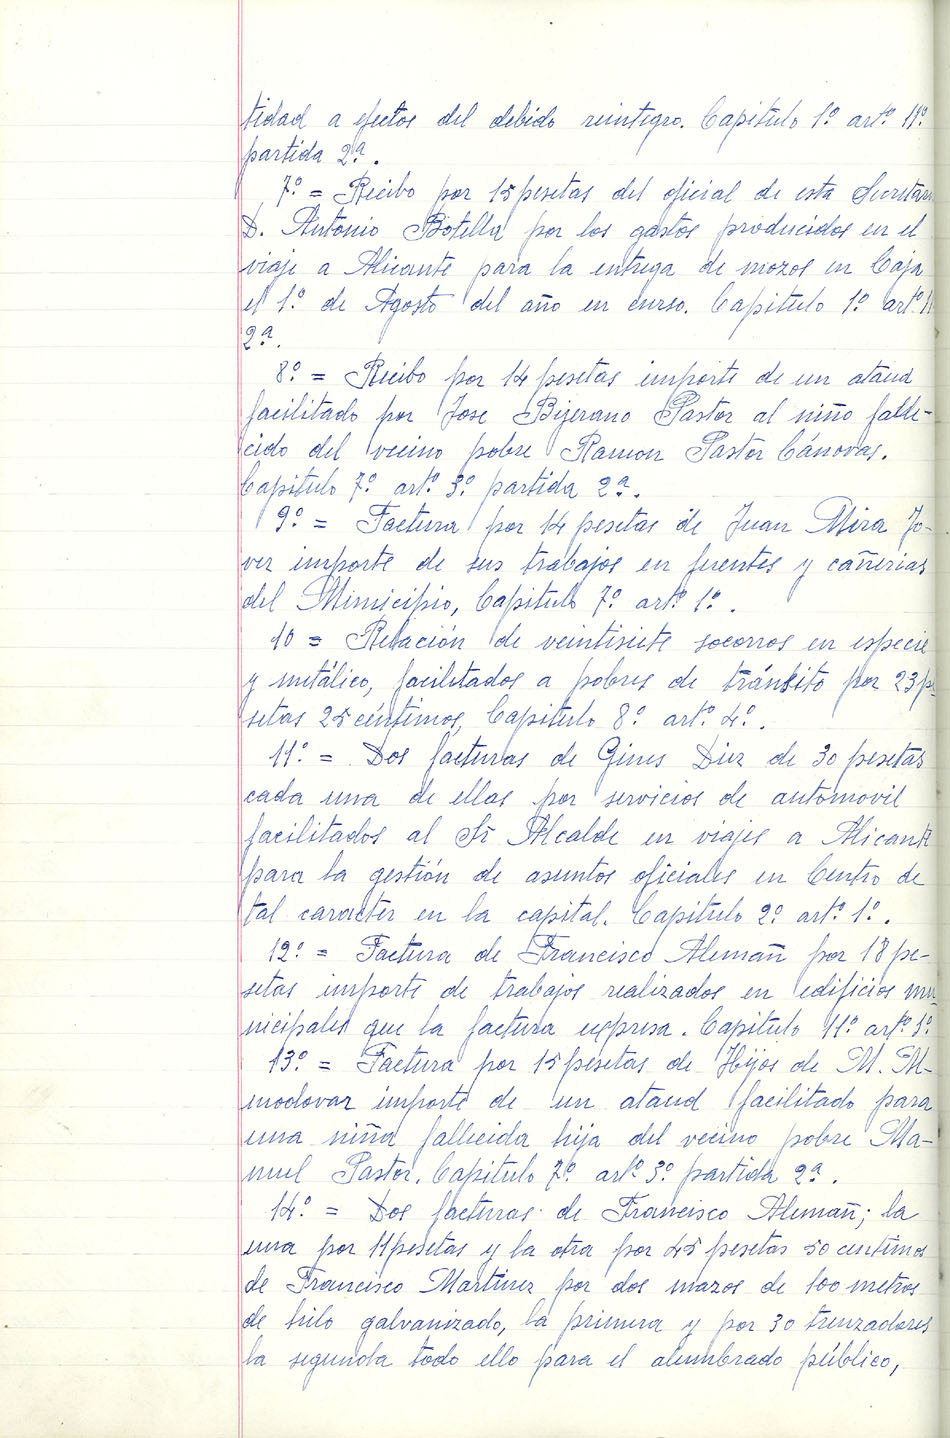 tidad a efectos del debido reintegro. Capitulo 1º artº 11º
partida 2ª.
7º = Recibo por 15 pesetas del oficial de esta Secretari
D. Antonio Botella por los gastos producidos en el
viaje a Alicante para la entrega de mozos en Caja
el 1º de Agosto del año en curso. Capitulo 1º artº 11
2ª.
8º = Recibo por 14 pesetas importe de un ataud
facilitado por Jose Bejerano Pastor al niño falle-
cido del vecino pobre Ramon Pastor Cánovas.
Capitulo 7º artº 3º partida 2ª.
9º = Factura por 14 pesetas de Juan Mira Jo-
ver importe de sus trabajos en fuentes y cañerias
del Municipio, Capitulo 7º artº 1º.
10 = Relación de veintisiete socorros en especie
y metálico, facilitados a pobres de tránsito por 23 pe-
setas 25 céntimos, Capitulo 8º artº 4º.
11º = Dos facturas de Gines Diez de 30 pesetas
cada una de ellas por servicios de automovil
facilitados al Sr Alcalde en viajes a Alicante
para la gestión de asuntos oficiales en Centro de
tal caracter en la capital. Capitulo 2º artº 1º.
12º = Factura de Francisco Alemañ por 18 pe-
setas importe de trabajos realizados en edificios mu-
nicipales que la factura expresa. Capitulo 11º artº 1º
13º = Factura por 15 pesetas de Hijos de M. Al-
modovar importe de un ataud facilitado para
una niña fallecida hija del vecino pobre Ma-
nuel Pastor. Capitulo 7º artº 3º partida 2ª.
14º = Dos facturas de Francisco Alemañ; la
una por 11 pesetas y la otra por 45 pesetas 50 centimos
de Francisco Martinez por dos mazos de 100 metros
de hilo galvanizado, la primera y por 30 trenzadores
la segunda todo ello para el alumbrado público,